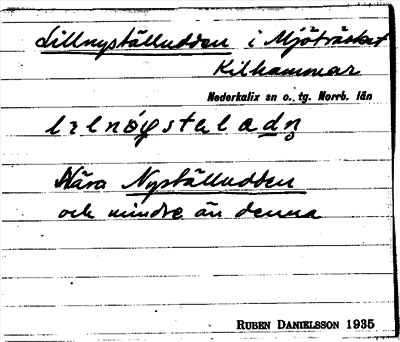 Lillnyställudden i Mjöträsket
Kilhammar
Nederkalix sn o. tg. Norrb. län
Nära Nyställudden
och mindre än denna
RUBEN DANIELSSON 1935